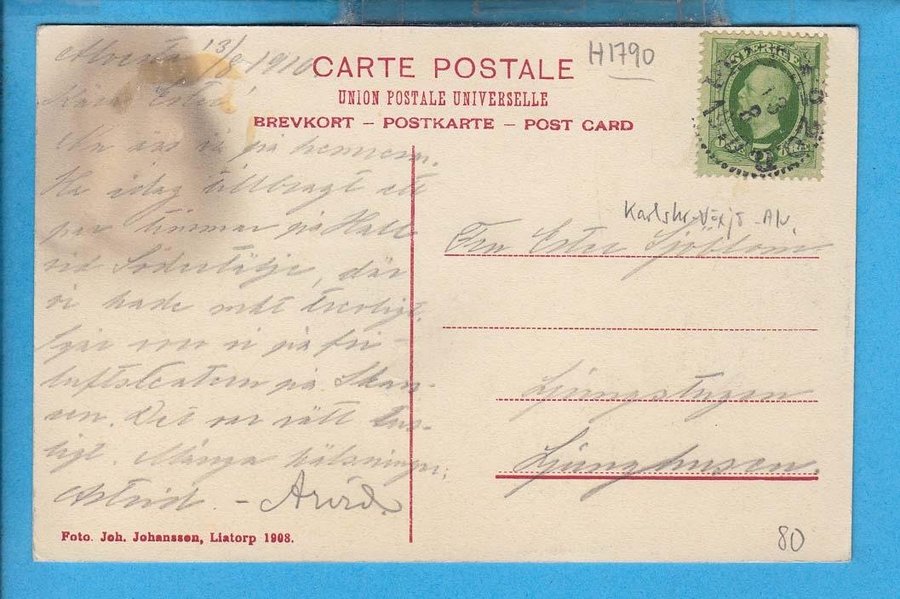 Alvesta 13/8 1910
Kära Ester!
Nu äro vi på hemresa.
Ha idag tillbragt ett
par timmar på Hall
vid Södertälje, där
vi hade mkt trevligt.
Igår voro vi på fri-
luftsteatern på Skan-
sen. Det var rätt lus-
tigt. Många hälsningar,
Astrid. - Arvid
Foto. Joh. Johansson, Liatorp 1908.
CARTE POSTALE
UNION POSTALE UNIVERSELLE
BREVKORT – POSTKARTE – POST CARD
H1790
Karlskr-Växjö-Alv.
Fru Ester Sjöblom
Ljungstugan
Ljunghusen.
80